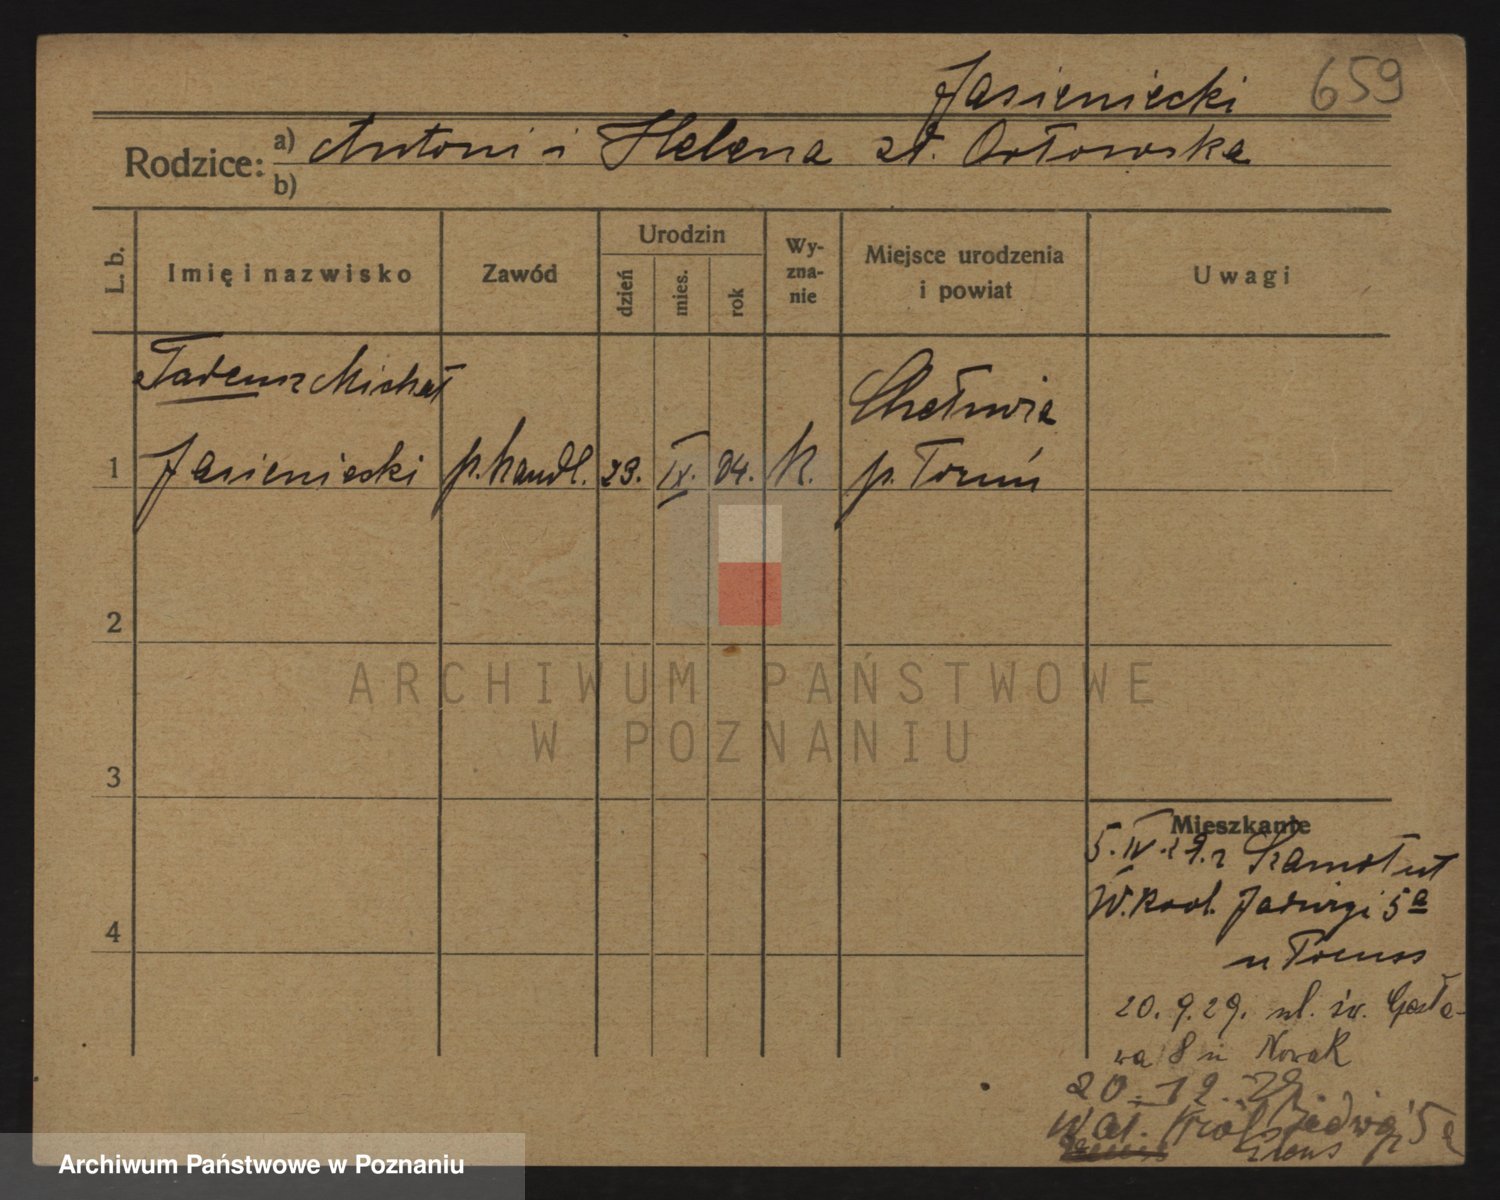 Jasieniecki 659
Rodzice: a) Antoni i Helena zd. Orłowska
b)
L. b. Imię i nazwisko Zawód Urodzin dzień mies. rok Wy-zna-nie Miejsce urodzenia i powiat Uwagi
Tadeusz Michał Chełmża
1 Jasieniecki p. handl. 23. IX. 04. k. p. Toruń
2
ARCHIWUM PAŃSTWOWE
W POZNANIU
3
Mieszkanie
5. IV. 29. r Szamotuł
W. Król. Jadwigi 5a
4
u
20. 9. 29. ul. św. Czesła-
wa 8 u Nowak
20. 12. 29
W. Król Jadwigi 5a
Archiwum Państwowe w Poznaniu